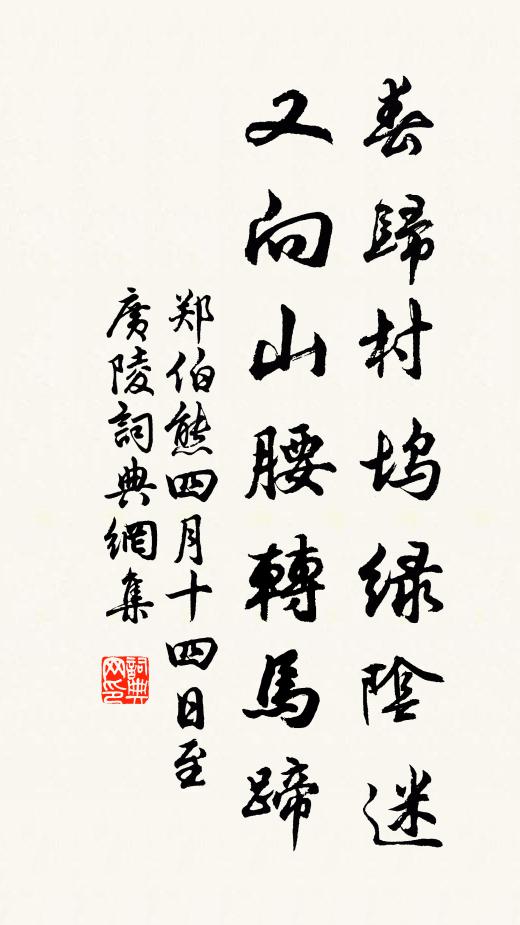 春歸村塢緑陰迷
又向山腰轉馬蹄
郑伯熊四月十四日至
廣陵詞典網集
詞典网印